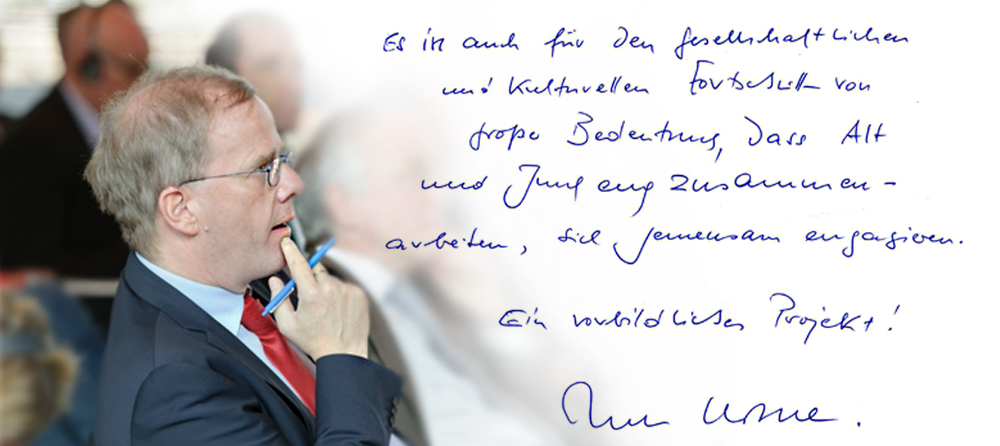 Es ist auch für den gesellschaftlichen
und kulturellen Fortschritt von
große Bedeutung, dass Alt
und Jung eng zusammen-
arbeiten, sich gemeinsam engagieren.
Ein vorbildliches Projekt!